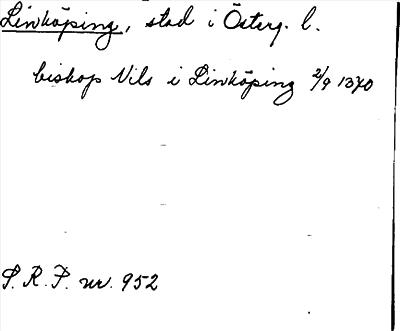 Linköping, stad i Österg. l.
biskop Nils i Linköping 2/9 1370
S. R. P. nr. 952